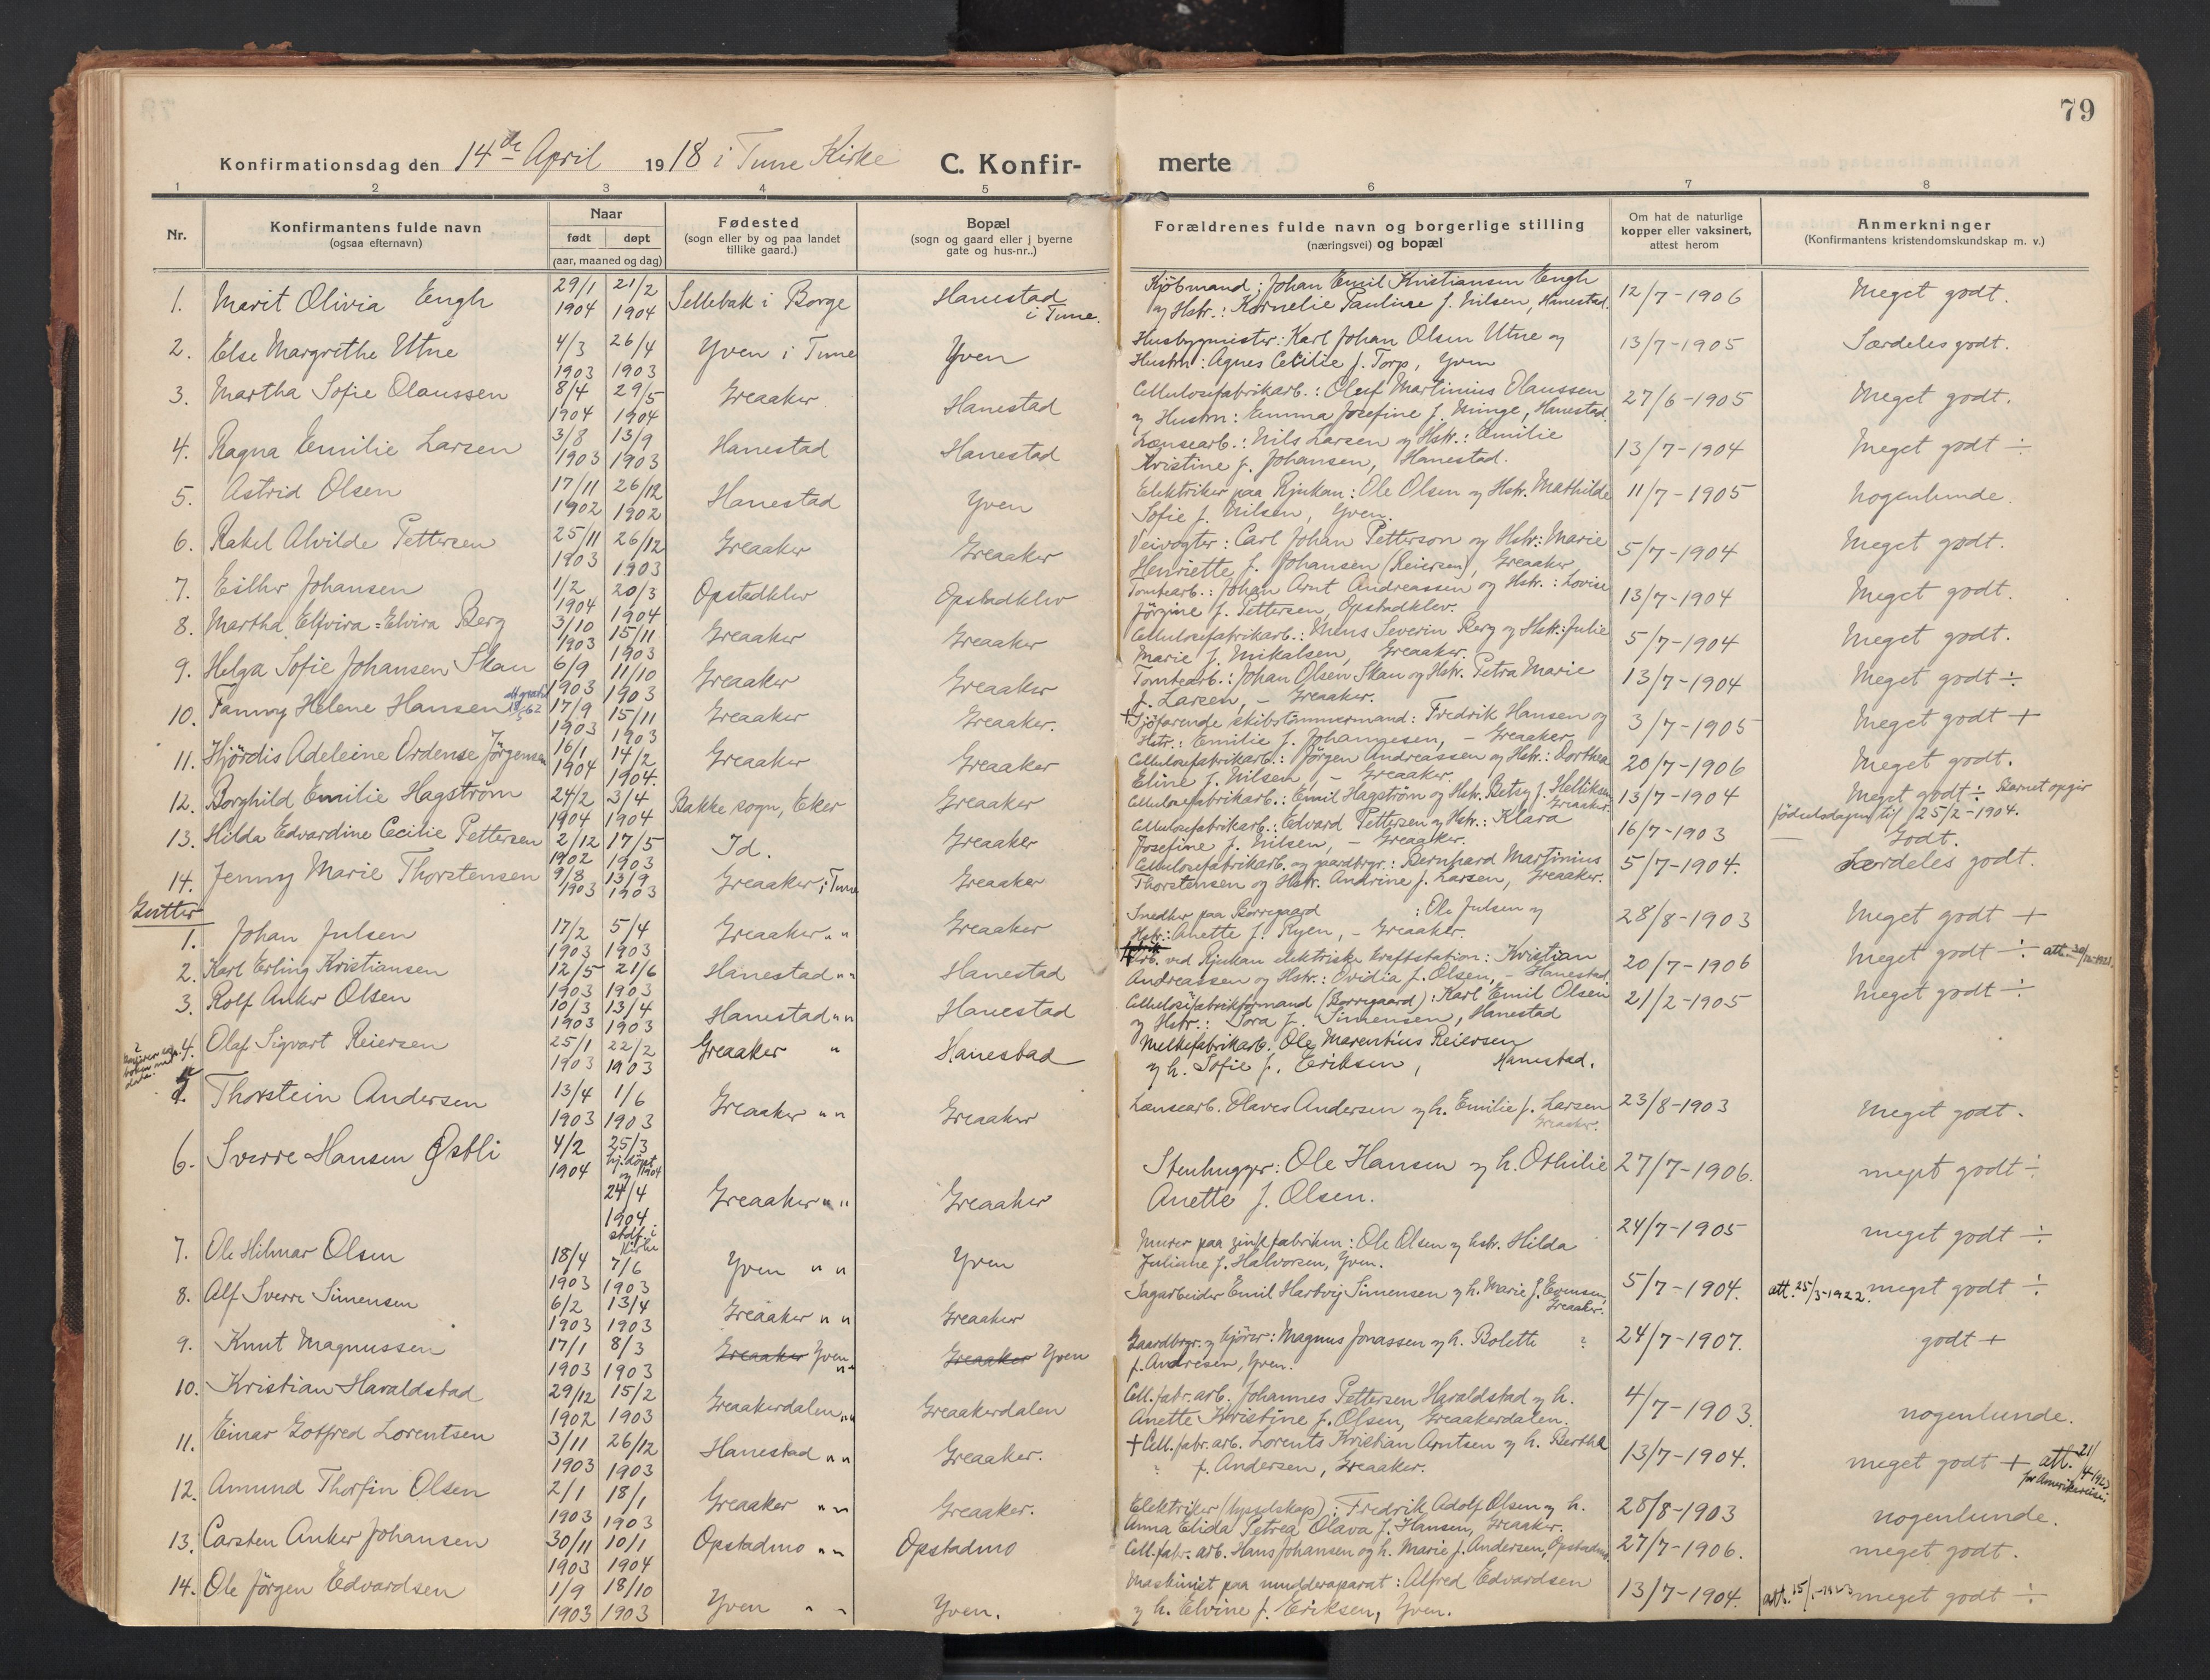 79
Konfirmationsdag den 14de April 1918 i Tune Kirke
C. Konfir- merte
1 2 3 4 5 6 7 8
Nr.
Konfirmantens fulde navn
(ogsaa efternavn)
Naar
født døpt
(aar, maaned og dag)
Fødested
(sogn eller by og paa landet
tillike gaard.)
Bopæl
(sogn og gaard eller i byerne
gate og hus-nr..)
Forældrenes fulde navn og borgerlige stilling
(næringsvei) og bopæl
Om hat de naturlige
kopper eller vaksinert,
attest herom
Anmerkninger
(Konfirmantens kristendomskundskap m. v.)
1. Marit Olivia Engh 29/1 1904 21/2 1904 Sellebak i Borge Hanestad i Tune.
Kjöbmand: Johan Emil Kristiansen Engh
og Hstr.: Kornelie Pauline f. Nilsen, Hanestad. 12/7-1906 Meget godt.
2. Else Margrethe Utne 4/3 1903 26/4 1903 Yven i Tune Yven
Husbygmester: Karl Johan Olsen Utne og
Hustru: Agnes Cecilie f. Torp, Yven 13/7-1905 Særdeles godt.
3. Martha Sofie Olaussen 8/4 1904 29/5 1904 Greaaker Hanestad
Cellulosefabrikarb.: Oluf Martinius Olaussen
og Hustru: Emma Josefine f. Minge, Hanestad. 27/6-1905 Meget godt.
4. Ragna Emilie Larsen 3/8 1903 13/9 1903 Hanestad Hanestad
Lænsearb.: Nils Larsen og Hstr.: Emilie
Kristine f. Johansen, Hanestad. 13/7-1904 Meget godt ÷
5. Astrid Olsen 17/11 1902 26/12 1902 Hanestad Yven
Elektriker paa Rjukan: Ole Olsen og Hstr. Mathilde
Sofie f. Nilsen, Yven. 11/7-1905 nogenlunde.
6. Rakel Alvilde Pettersen 25/11 1903 26/12 1903 Greaaker Greaaker
Veivogter: Carl Johan Petterson og Hstr.: Marie
Henriette f. Johansen (Reiersen), Greaaker 5/7-1904 Meget godt.
7. Esther Johansen 1/2 1904 20/3 1904 Opstadklev Opstadklev
Tomtearb.: Johan Arnt Andreassen og Hstr.: Lovise
Jörgine f. Pettersen, Opstadklev. 13/7-1904 Meget godt.
8. Martha Elfvira=Elvira Berg 3/10 1903 15/11 1903 Greaaker Greaaker
Cellulosefabrikarb.: Mens Severin Berg og Hstr.: Julie
Marie f. Mikalsen, Greaaker. 5/7-1904 Meget godt.
9. Helga Sofie Johansen Skau 6/9 1903 11/10 1903 Greaaker Greaaker
Tomtearb.: Johan Olsen Skau og Hstr. Petra Marie
f. Larsen, - Greaaker. 13/7-1904 Meget godt ÷
10. Fanny Helene Hansen 17/9 1903 15/11 1903 Greaaker Greaaker.
+Sjöfarende skibstömmermand: Fredrik Hansen og
Hstr.: Emilie f. Johannesen, - Greaaker 3/7-1905 Meget godt +
11. Hjördis Adeleine Ordense Jörgensen 16/1 1904 14/2 1904. Greaaker Greaaker
Cellulosefabrikarb.: Jörgen Andreassen og Hstr.: Dorthea
Eline f. Nilsen, - Greaaker. 20/7-1906 Meget godt.
12. Borghild Emilie Hagström 24/2 1904 3/4 1904 Bakke sogn, Eker Greaaker
Cellulosefabrikarb.: Emil Hagström og Hstr. Betsy f. Helliksen
Greaaker. 13/7-1904 Meget godt ÷ Barnet opgir
födselsdagen til 25/2-1904.
13. Hilda Edvardine Cecilie Pettersen 2/12 1902 17/5 1903 Id. Greaaker
Cellulosefabrikarb.: Edvard Pettersen og Hstr.: Klara
Josefine f. Nilsen, - Greaaker. 16/7-1903 Godt.
14. Jenny Marie Thorstensen 9/8 1903 13/9 1903 Greaaker i Tune Greaaker
Cellulosefabrikarb. og gaardbrgr.: Bernhard Martinius
Thorstensen og Hstr. Andrine f. Larsen, Greaaker. 5/7-1904. Særdeles godt.
Gutter
1. Johan Julsen 17/2 1903 5/4 1903 Greaaker " " Greaaker
Snedker paa Borregaard : Ole Julsen og
Hstr.: Anette f. Ryen, - Greaaker. 28/8-1903 Meget godt +
2. Karl Erling Kristiansen 12/5 1903 21/6 1903 Hanestad " " Hanestad
Arb. ved Rjukan elektriske kraftstation: Kristian
Andreassen og Hstr.: Ovidia f. Olsen, - Hanestad 20/7-1906 Meget godt ÷
3. Rolf Anker Olsen 10/3 1903 13/4 1903 Hanestad " " Hanestad
Cellulosefabrikformand (Borregaard): Karl Emil Olsen
og Hstr.: Tora f. Simensen, Hanestad 21/2-1905 Meget godt ÷
4. Olaf Sigvart Reiersen 25/1 1903 22/2 1903 Greaaker " Hanestad
Melkefabrikarb. Ole Marentius Reiersen
og h. Sofie f. Eriksen, Hanestad.
Thorstein Andersen 13/4 1903 1/6 1903 Greaaker " " Greaaker
Lænsearb. Olaves Andersen og h. Emilie f. Larsen
Greaaker. 23/8-1903 Meget godt.
6. Sverre Hansen Østli 4/2 1904 25/3 hj.döpt og 1904 24/4 1904. stdf. i Kirke Greaaker " " Greaaker
Stenhugger: Ole Hansen og h. Othilie
Anette f. Olsen. 27/7-1906. meget godt ÷
7. Ole Hilmar Olsen 18/4 1903 7/6 1903 Yven " " Yven
Murer paa zinkfabriken: Ole Olsen og hstr. Hilda
Juliane f. Halvorsen, Yven. 24/7-1905 meget godt ÷
8. Alf Sverre Simensen 6/2 1903 13/4 1903 Greaaker " " Greaaker
Sagarbeider Emil Hartvig Simensen og h. Marie f. Evensen,
Greaaker. 5/7-1904. att. 25/3-1922. meget godt ÷
9. Knut Magnussen 17/1 1903 8/3 1903 Greaaker Yven " " Greaaker Yven
Gaardbrgr. og kjörer: Magnus Jonassen og h. Bolette
f. Andresen, Yven. 24/7-1907. godt +
10. Kristian Haraldstad 29/12 1902 15/2 1903 Greaakerdalen " " Greaakerdalen
Cell.fabr.arb. Johannes Pettersen Haraldstad og h.
Anette Kristine f. Olsen, Greaakerdalen. 4/7-1903. nogenlunde.
11. Einar Gotfred Lorentsen 3/11 1903 26/12 1903 Hanestad " " Greaaker.
+Cell.fabr.arb. Lorents Kristian Arntsen og h. Bertha
f. Andersen, Greaaker. 13/7-1904. meget godt + att. 21/4-1923
for Amerikareise.
12. Amund Thorfin Olsen 2/1 1903 18/1 1903 Greaaker " " Greaaker.
Elektriker (lysselskap): Fredrik Adolf Olsen og h.
Anna Elida Petrea Olava f. Hansen, Greaaker. 28/8-1903 nogenlunde.
13. Carsten Anker Johansen 30/11 1903 10/1 1904 Opstadmo " " Opstadmo
Cell.fabr.arb. Hans Johansen og h. Marie f. Andersen, Opstadmo 27/7-1906. meget godt.
14. Ole Jörgen Edvardsen 1/9 1903 18/10 1903 Yven " " Yven.
Maskinist paa mudderaparat: Alfred Edvardsen
og h. Elvine f. Eriksen, Yven. 13/7-1904. meget godt ÷